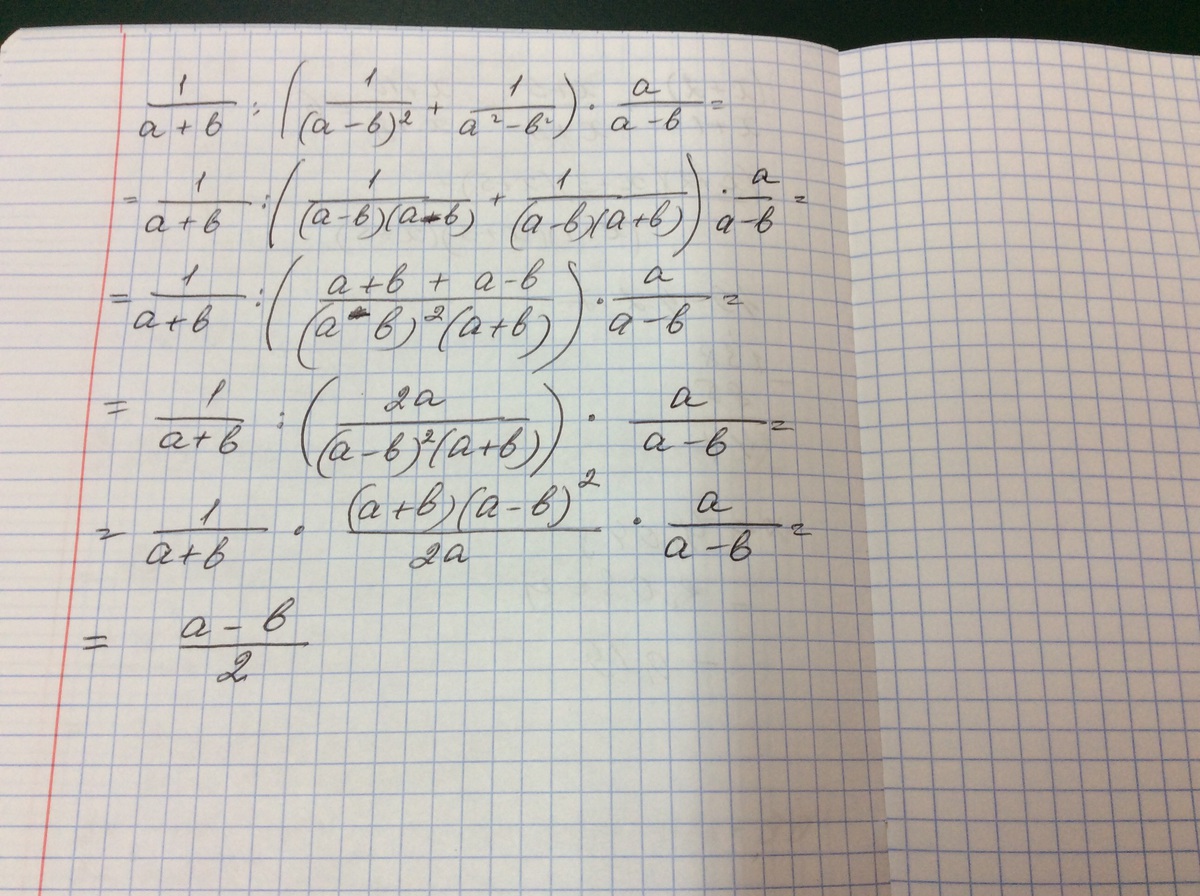 1/(a+b) : (1/(a-b)² + 1/(a²-b²)) · a/(a-b) =
= 1/(a+b) : (1/((a-b)(a-b)) + 1/((a-b)(a+b))) · a/(a-b) =
= 1/(a+b) : ((a+b + a-b)/((a-b)²(a+b))) · a/(a-b) =
= 1/(a+b) : (2a/((a-b)²(a+b))) · a/(a-b) =
= 1/(a+b) · ((a+b)(a-b)²)/(2a) · a/(a-b) =
= (a-b)/2